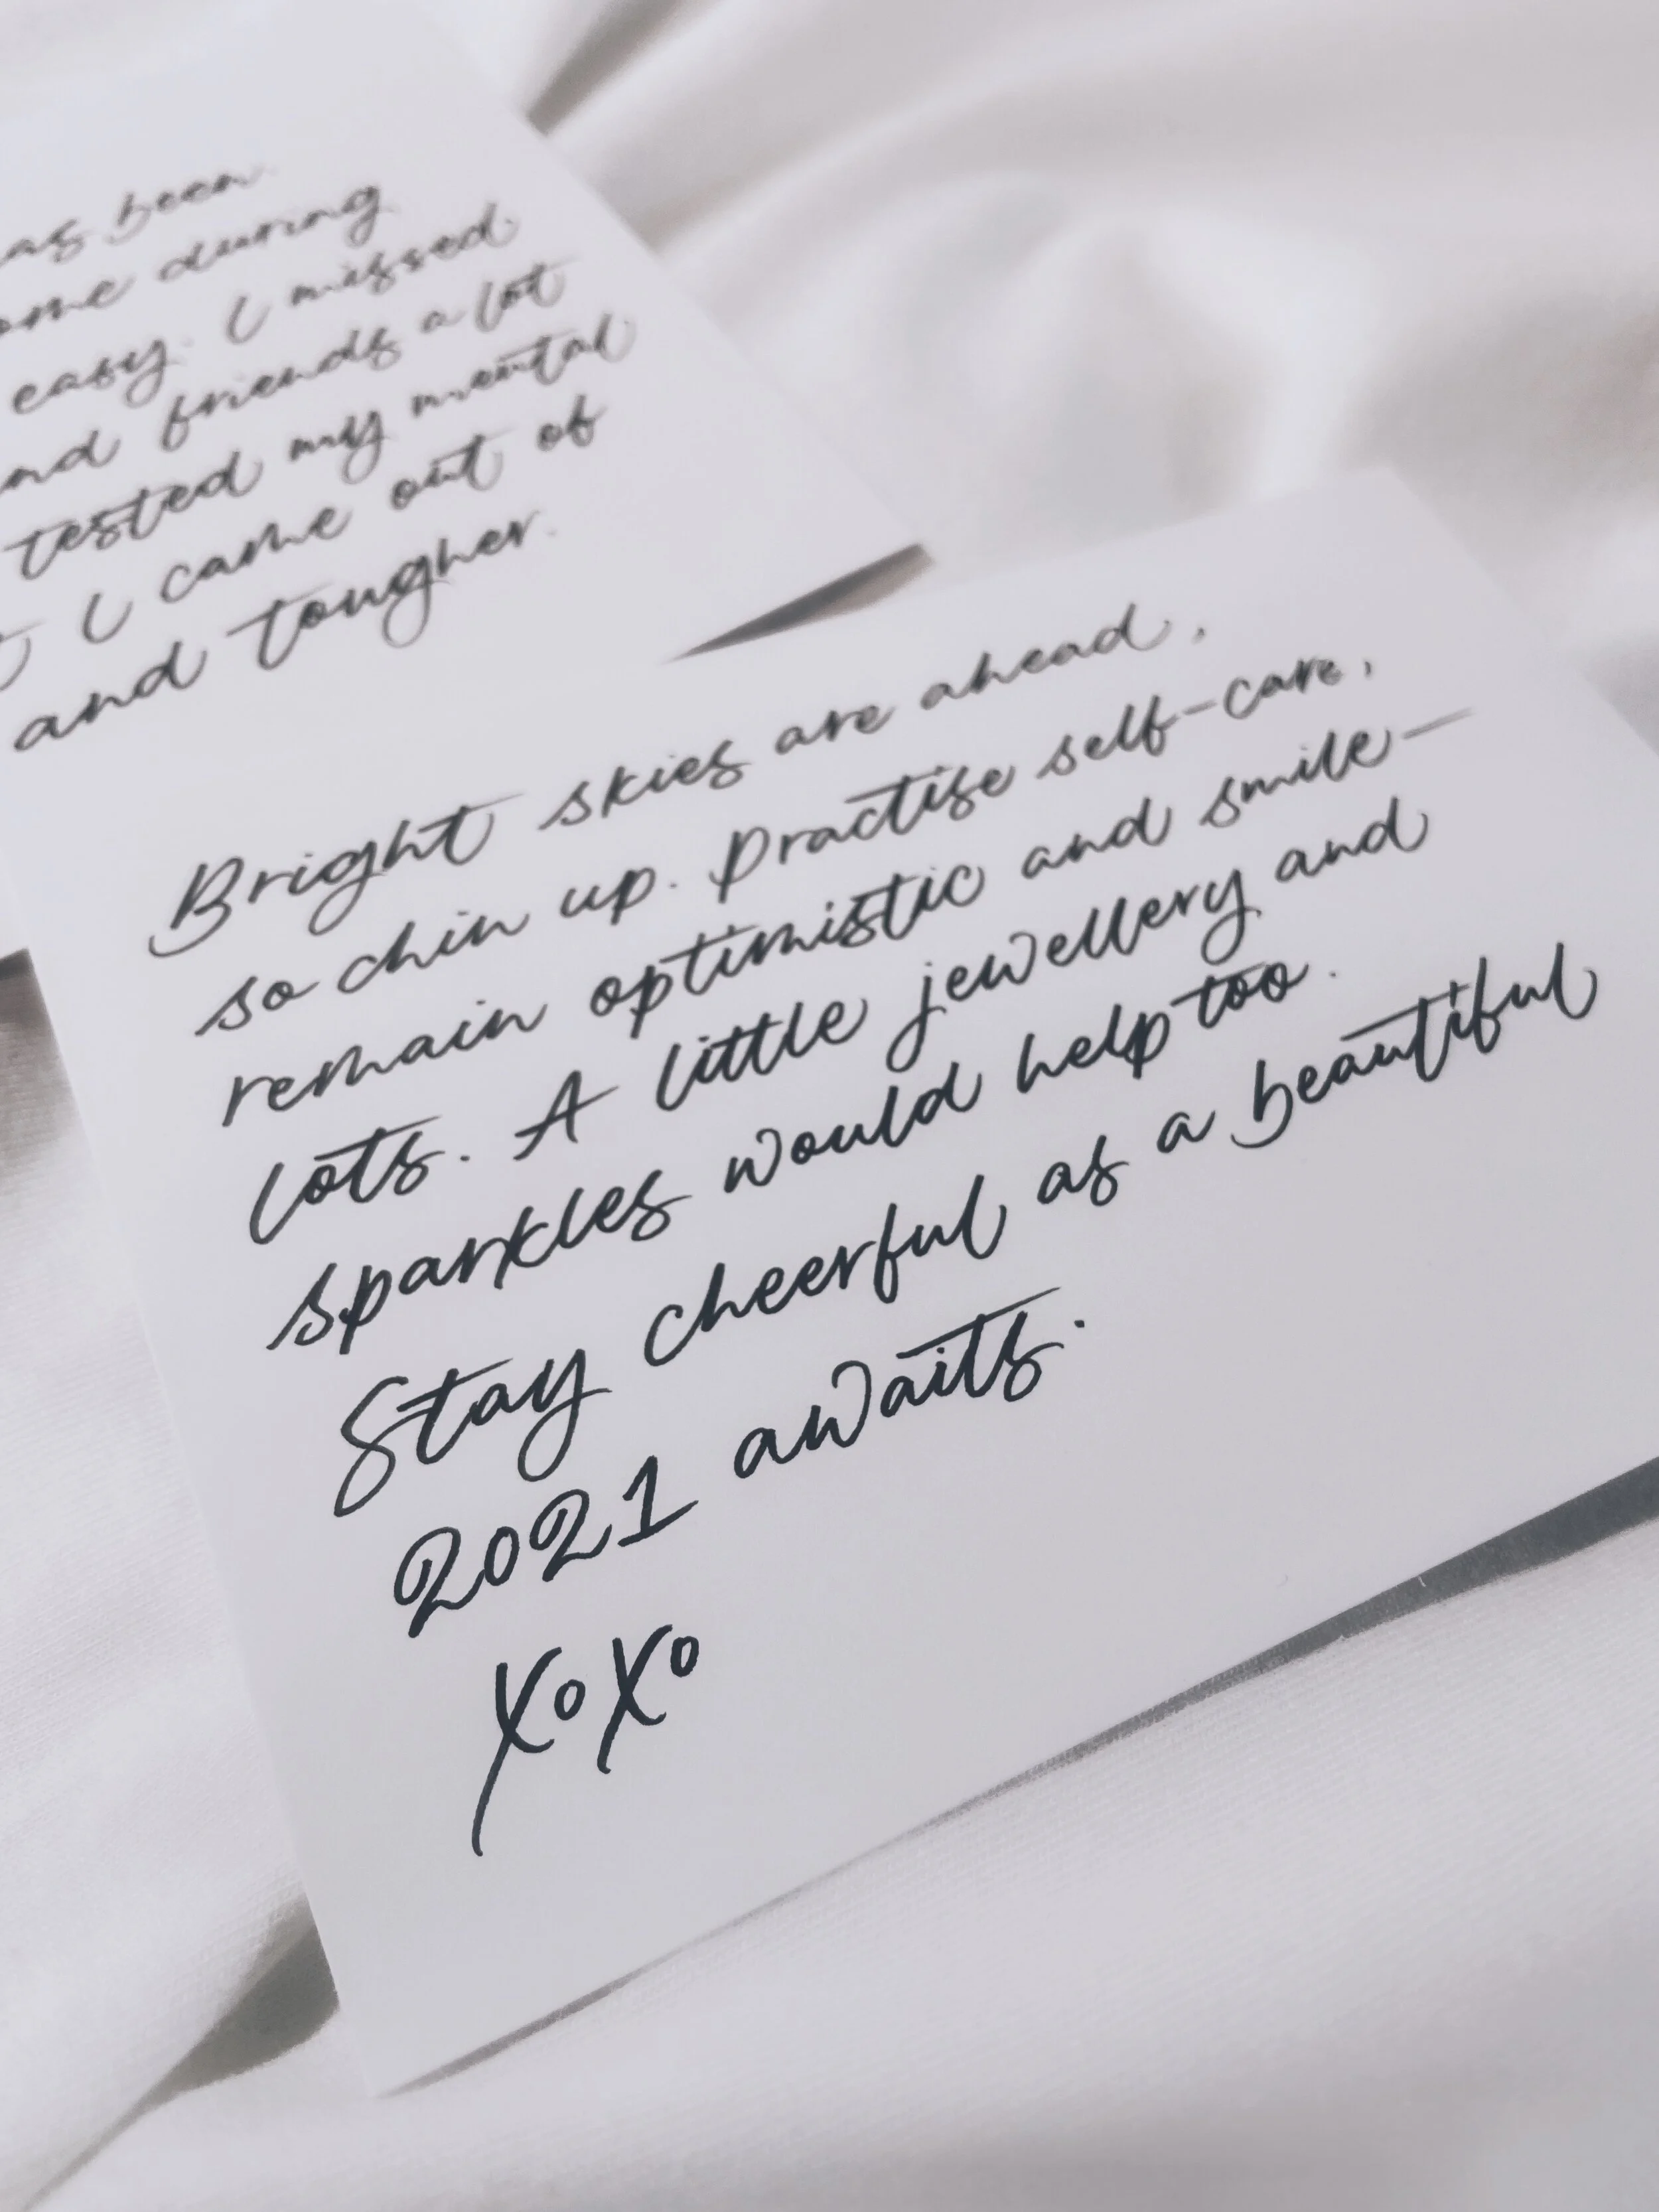 as been
ome during
easy. I missed
nd friends a lot
tested my mental
I came out of
and tougher.
Bright skies are ahead,
so chin up. Practise self-care,
remain optimistic and smile—
lots. A little jewellery and
sparkles would help too.
Stay cheerful as a beautiful
2021 awaits.
XoXo